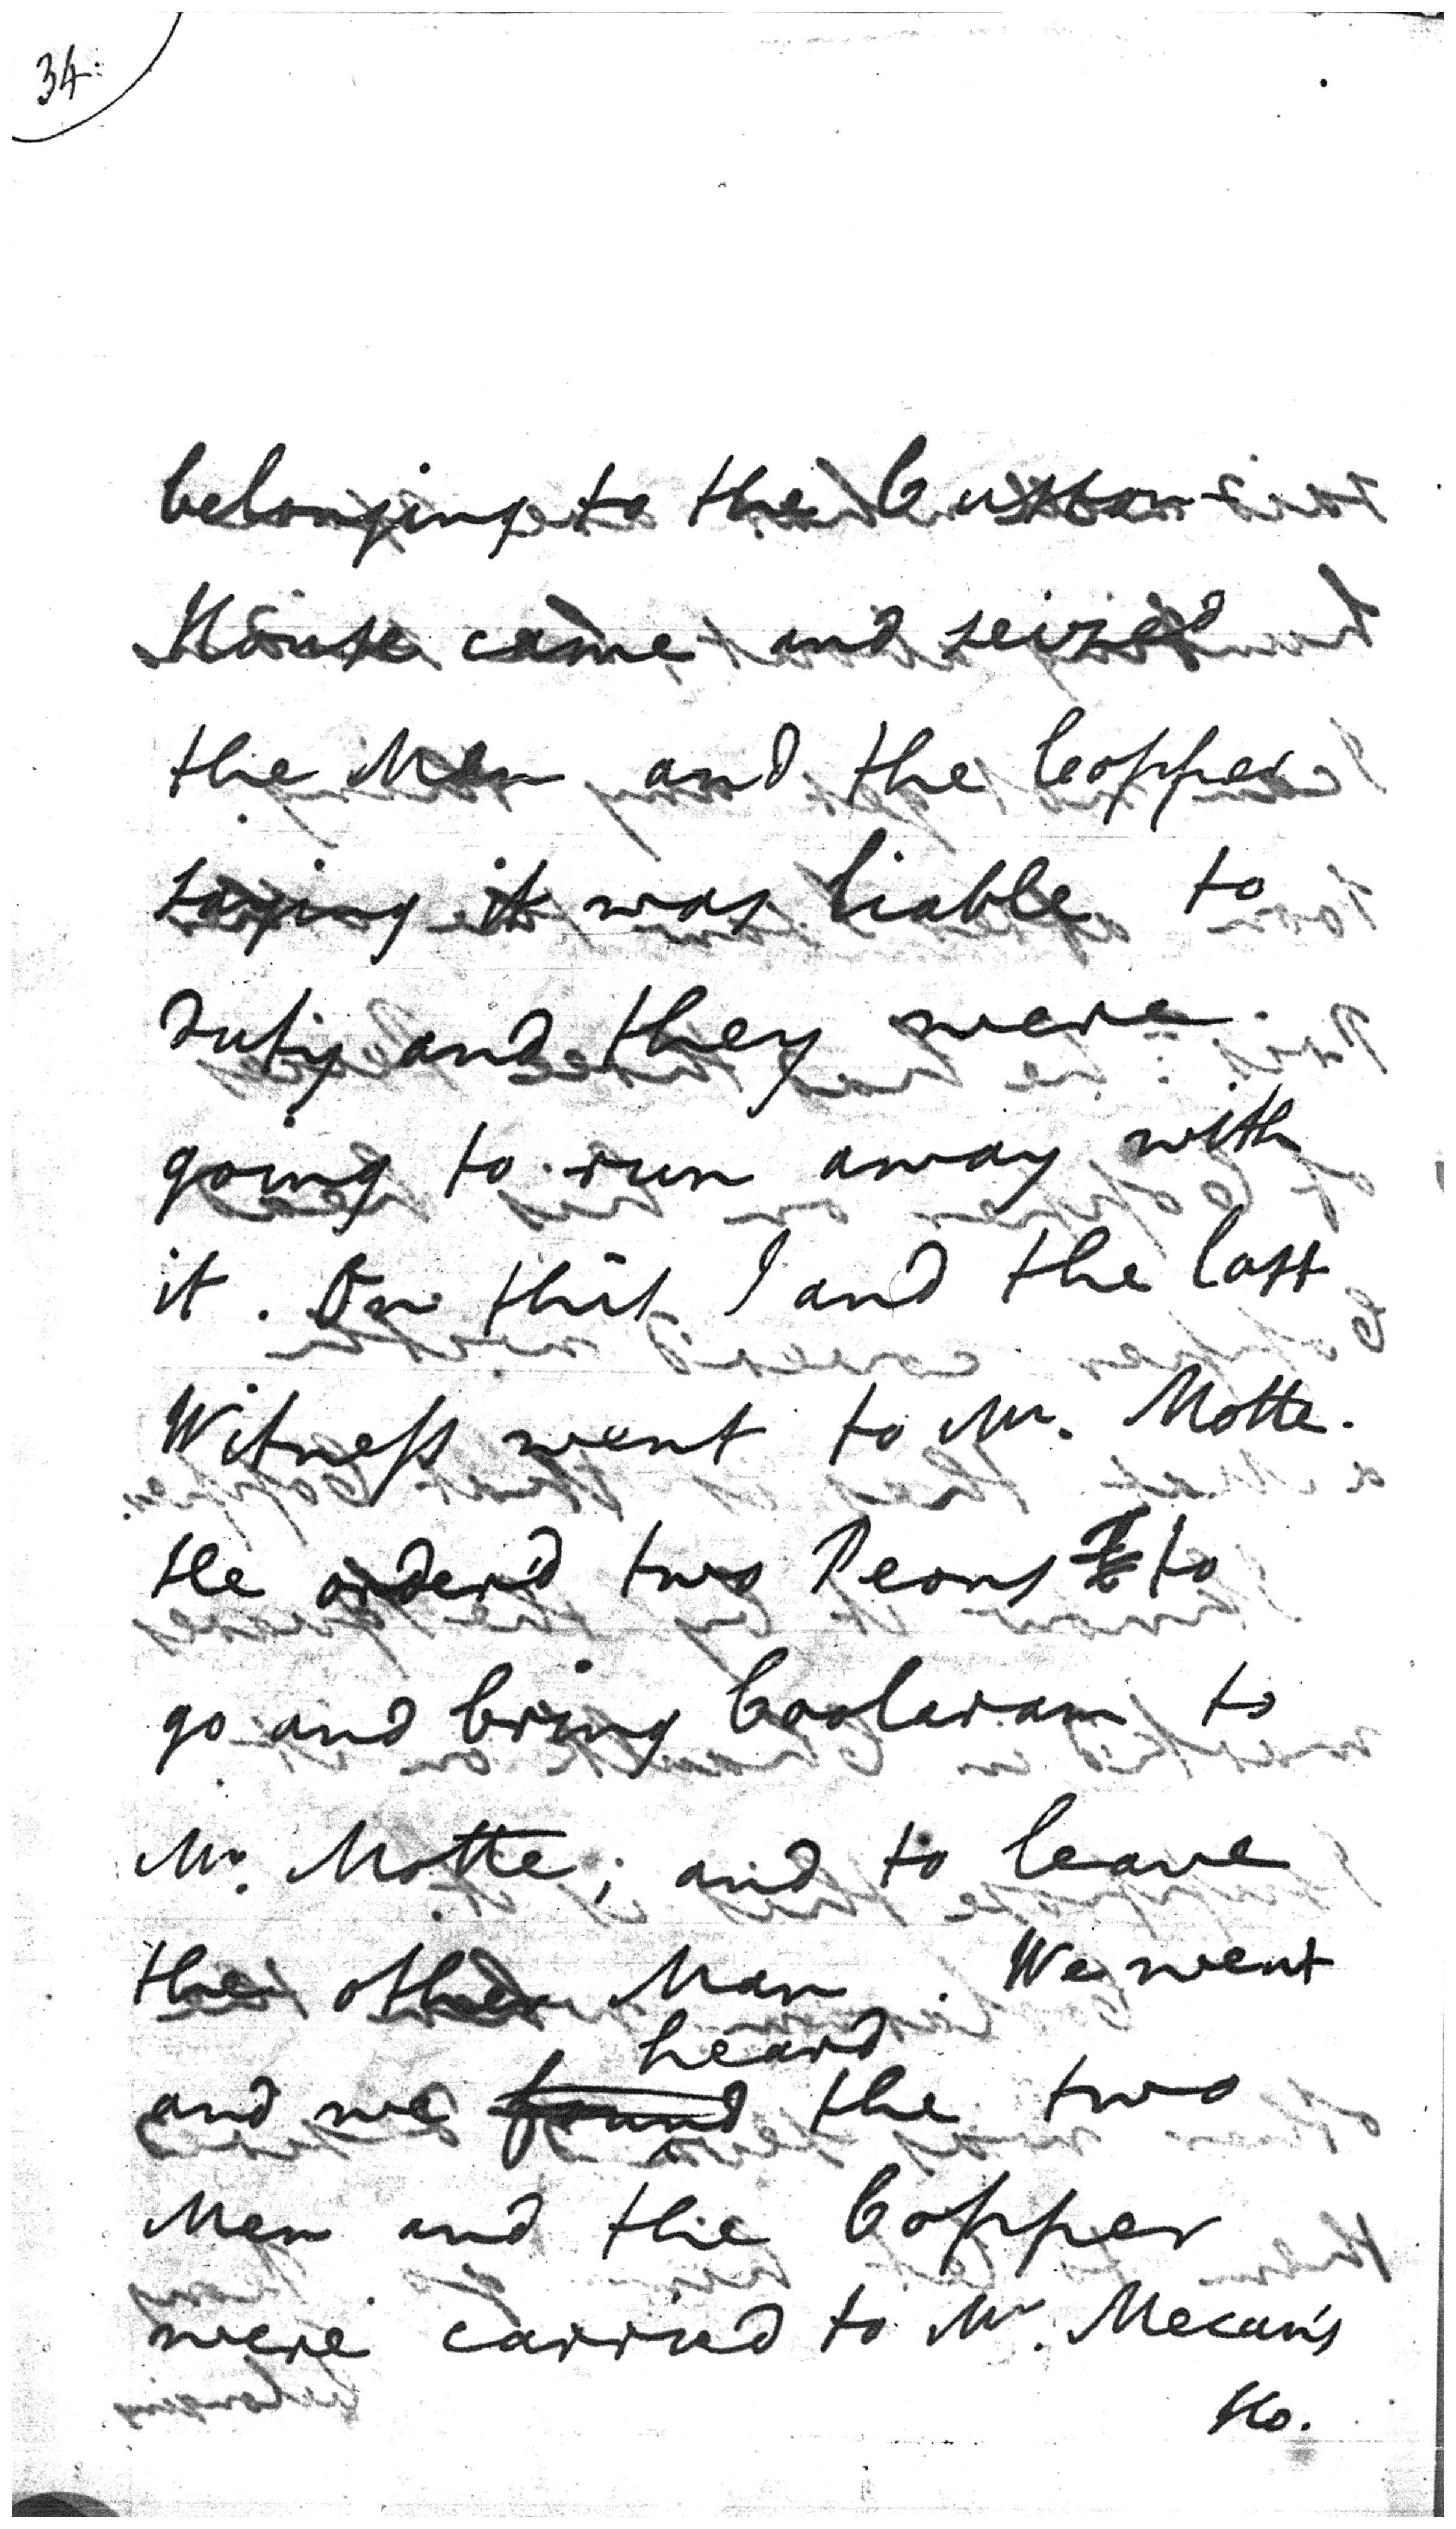 34.
belonging to the Custom-
House came and seized
the Men and the Copper
saying it was liable to
Duty and they were
going to run away with
it. On this I and the last
Witness went to Mr. Motte.
He order'd two Peons to
go and bring Coolaram to
Mr. Motte; and to leave
the other Man. We went
heard
and we found the two
Men and the Copper
were carried to Mr. Mecan's
Ho.